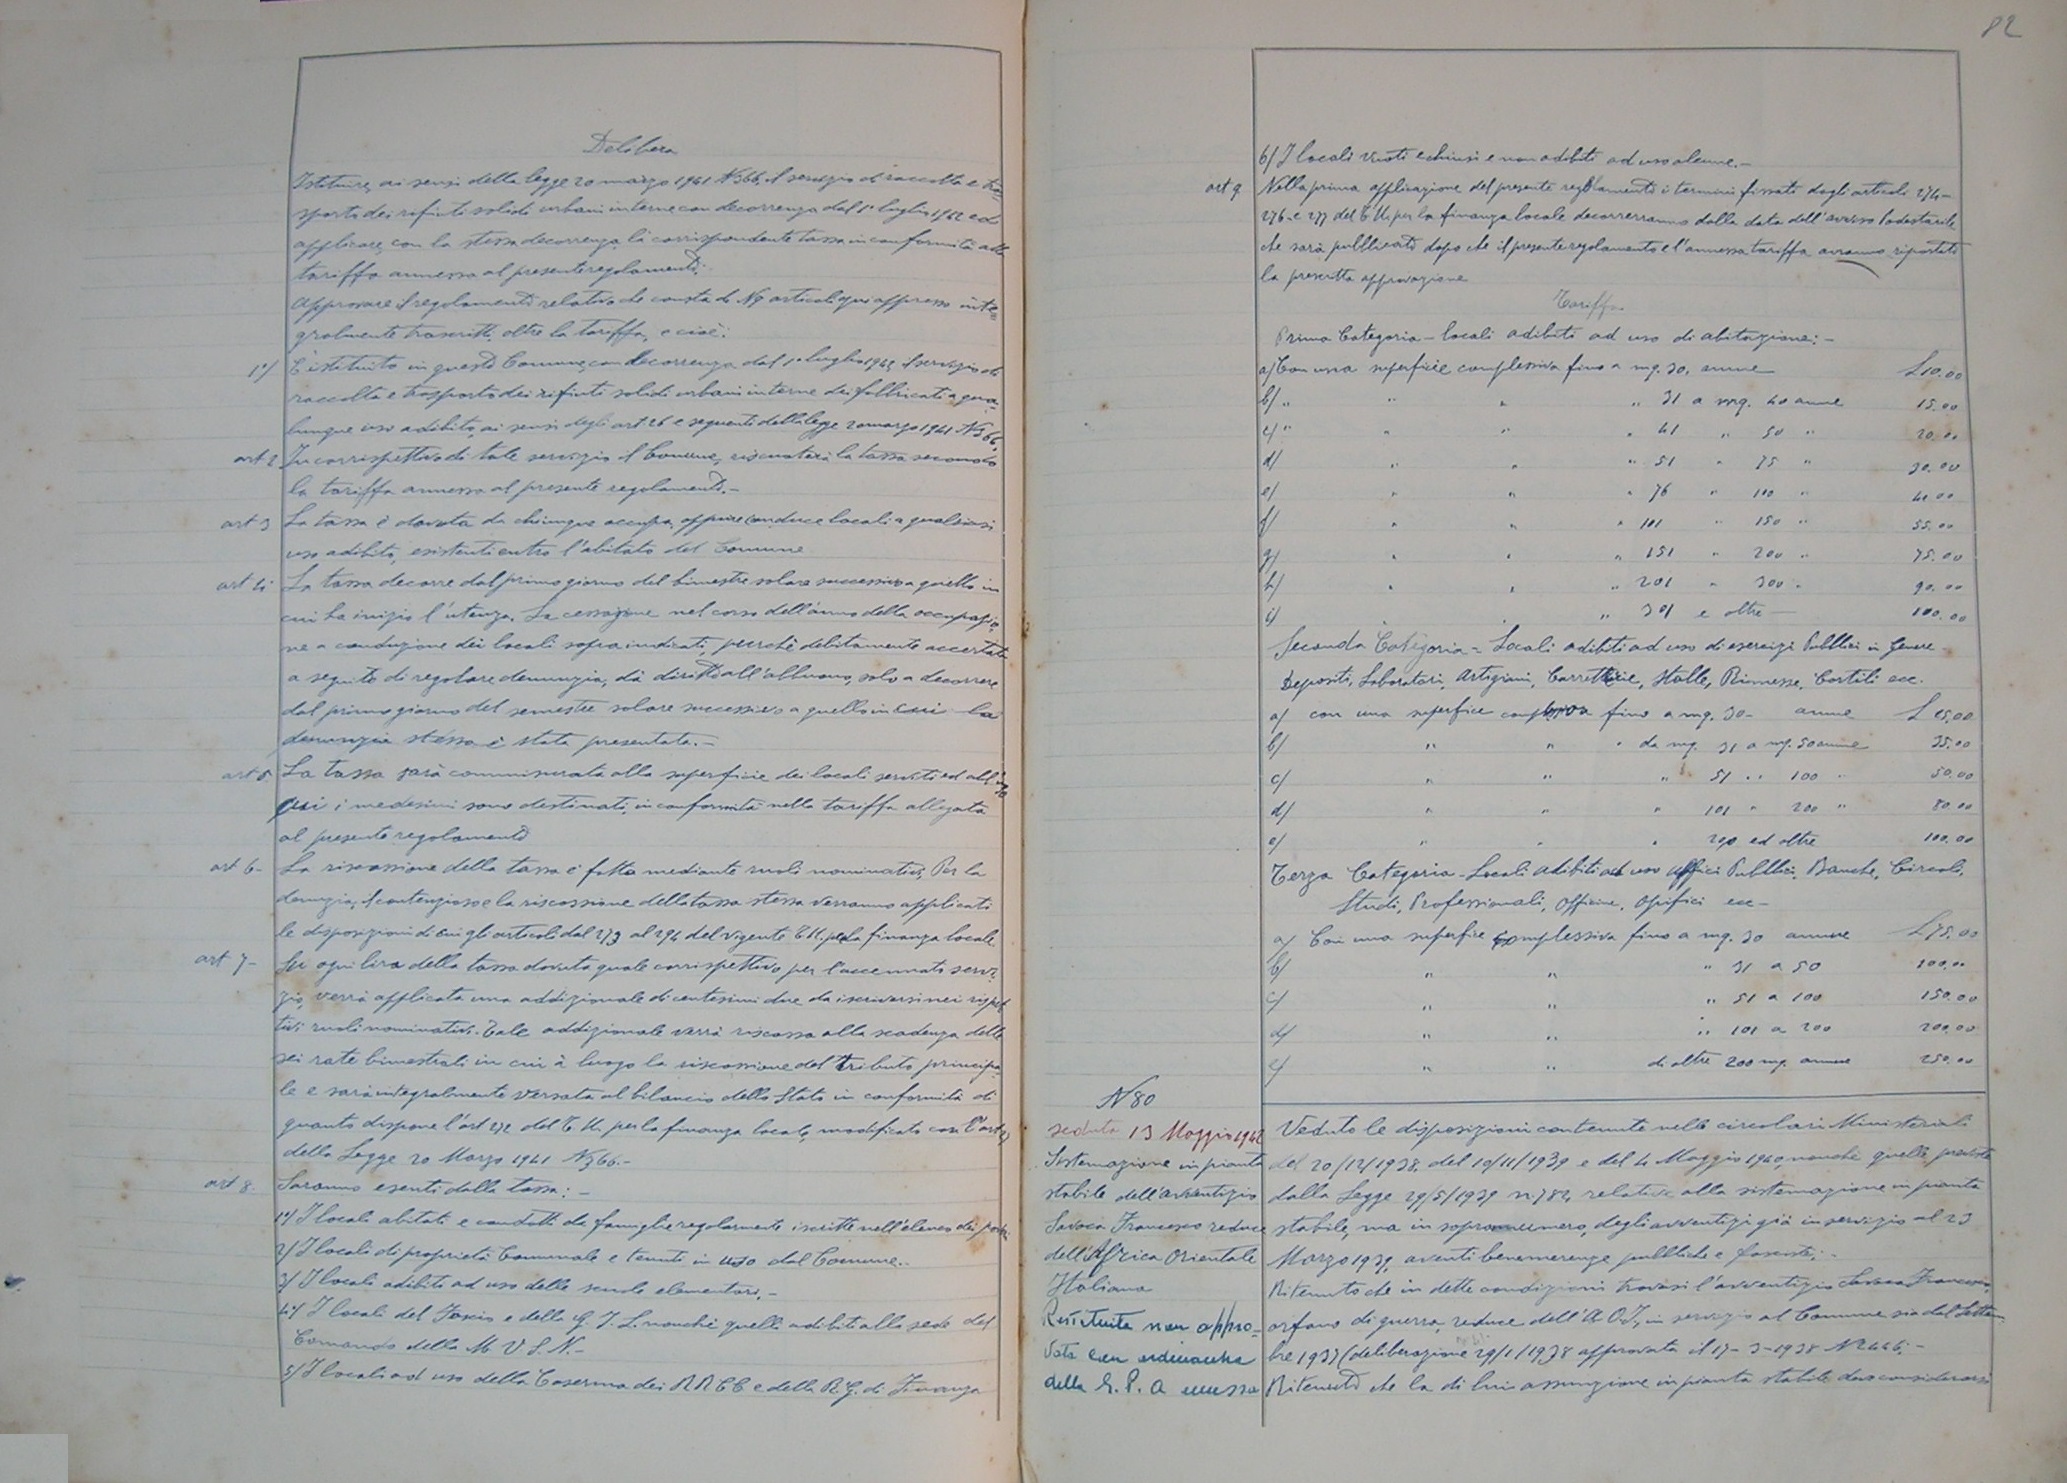 Delibera
Istituire, ai sensi della legge 20 marzo 1941 N366, il servizio di raccolta e tra=
sporto dei rifiuti solidi urbani interne con decorrenza dal 1° luglio 1942 ed
applicare, con la stessa decorrenza la corrispondente tassa in conformità alla
tariffa annessa al presente regolamento.
Approvare il regolamento relativo che consta di N9 articoli qui appresso inte=
gralmente trascritti, oltre la tariffa, e cioè:
1°/ È istituito in questo Comune, con decorrenza dal 1° luglio 1942, il servizio di
raccolta e trasporto dei rifiuti solidi urbani interne dei fabbricati a qua-
lunque uso adibito, ai sensi degli art 26 e seguenti della legge 20 marzo 1941 N366
art 2 In corrispettivo di tale servizio il Comune, riscuoterà la tassa secondo
la tariffa annessa al presente regolamento.-
art 3 La tassa è dovuta da chiunque occupa, oppure conduce locali a qualsiasi
uso adibito, esistenti entro l'abitato del Comune
art 4 La tassa decorre dal primo giorno del bimestre solare successivo a quello in
cui ha inizio l'utenza. La cessazione nel corso dell'anno della occupazio
ne o conduzione dei locali sopra indicati, purchè debitamente accertata
a seguito di regolare denunzia, dà diritto all'abbuono, solo a decorrere
dal primo giorno del semestre solare successivo a quello in cui la
denunzia stessa è stata presentata.-
art 5 La tassa sarà commisurata alla superficie dei locali serviti ed all'uso
cui i medesimi sono destinati, in conformità nella tariffa allegata
al presente regolamento
art 6- La riscossione della tassa è fatta mediante ruoli nominativi. Per la
denunzia, il contenzioso e la riscossione della tassa stessa verranno applicati
le disposizioni di cui gli articoli dal 273 al 294 del vigente T.U. per la finanza locale
art 7- Su ogni lira della tassa dovuta quale corrispettivo per l'accennato servi=
zio, verrà applicata una addizionale di centesimi due da iscriversi nei rispet
tivi ruoli nominativi. Tale addizionale verrà riscossa alla scadenza delle
sei rate bimestrali in cui à luogo la riscossione del Tributo principa
le e sarà integralmente versata al bilancio dello Stato in conformità di
quanto dispone l'art 272 del T.U. per la finanza locale, modificato con l'art
della Legge 20 Marzo 1941 N366.-
art 8. Saranno esenti dalla tassa:-
1°/ I locali abitati e condotti da famiglie regolarmente iscritte nell'elenco dei poveri
2/ I locali di proprietà Comunale e tenuti in uso dal Comune..
3/ I locali adibiti ad uso delle scuole elementari.-
4°/ I locali del Fascio e della G. I. L. nonchè quelli adibiti alla sede del
Comando della M. V. S. N.-
5/ I locali ad uso della Caserma dei RR CC e della R. G. di Finanza
82
6/ I locali vuoti e chiusi e non adibiti ad uso alcuno.-
art 9 Nella prima applicazione del presente regolamento i termini fissati dagli articoli 274-
276 e 277 del T.U. per la finanza locale decorreranno dalla data dell'avviso Podestarile
che sarà pubblicato dopo che il presente regolamento e l'annessa tariffa avranno riportato
la prescritta approvazione
Tariffa
Prima Categoria - locali adibiti ad uso di abitazione:-
a/ Con una superficie complessiva fino a mq. 30. annue L 10.00
b/ " " " " 31 a mq. 40 annue 15.00
c/ " " " " 41 " 50 " 20.00
d/ " " " 51 " 75 " 30.00
e/ " " " 76 " 100 " 40.00
f/ " " " 101 " 150 " 55.00
g/ " " " 151 " 200 " 75.00
h/ " " " 201 " 300 " 90.00
i/ " 301 e oltre - 100.00
Seconda Categoria = Locali adibiti ad uso di esercizi Pubblici in Genere -
Depositi, Laboratori, Artigiani, Carretterie, Stalle, Rimesse, Cortili ecc.
a/ con una superfice complessiva fino a mq. 30- annue L 25.00
b/ " " " da mq. 31 a mq. 50 annue 35.00
c/ " " " 51 " 100 " 50.00
d/ " " " 101 " 200 " 80.00
e/ " " " 200 ed oltre 100.00
Terza Categoria - Locali adibiti ad uso Uffici Pubblici, Banche, Circoli,
Studi, Professionali, Officine, Opifici ecc-
a/ Con una superfice complessiva fino a mq. 30 annue L. 75.00
b/ " " " 31 a 50 100.00
c/ " " " 51 a 100 150.00
d/ " " " 101 a 200 200.00
e/ " " di oltre 200 mq. annue 250.00
N 80
seduta 13 Maggio 1942
Sistemazione in pianta
stabile dell'avventizio
Savoca Francesco reduce
dell'Africa Orientale
Italiana
Restituita non appro-
vata con ordinanza
della G. P. A emessa
Vedute le disposizioni contenute nelle circolari Ministeriali
del 20/12/1938, del 10/11/1939 e del 4 Maggio 1940, nonchè quelle previste
dalla Legge 29/5/1939 n. 782, relative alla sistemazione in pianta
stabile, ma in soprannumero, degli avventizi già in servizio al 23
Marzo 1939, aventi benemerenze pubbliche e fasciste;-
Ritenuto che in dette condizioni trovasi l'avventizio Savoca Francesco,
orfano di guerra, reduce dell'A.O.I., in servizio al Comune sia dal Settem
bre 1937 (deliberazione 29/1/1938 approvata il 17-3-1938 N 2446;-
Ritenuto che la di lui assunzione in pianta stabile deve considerarsi